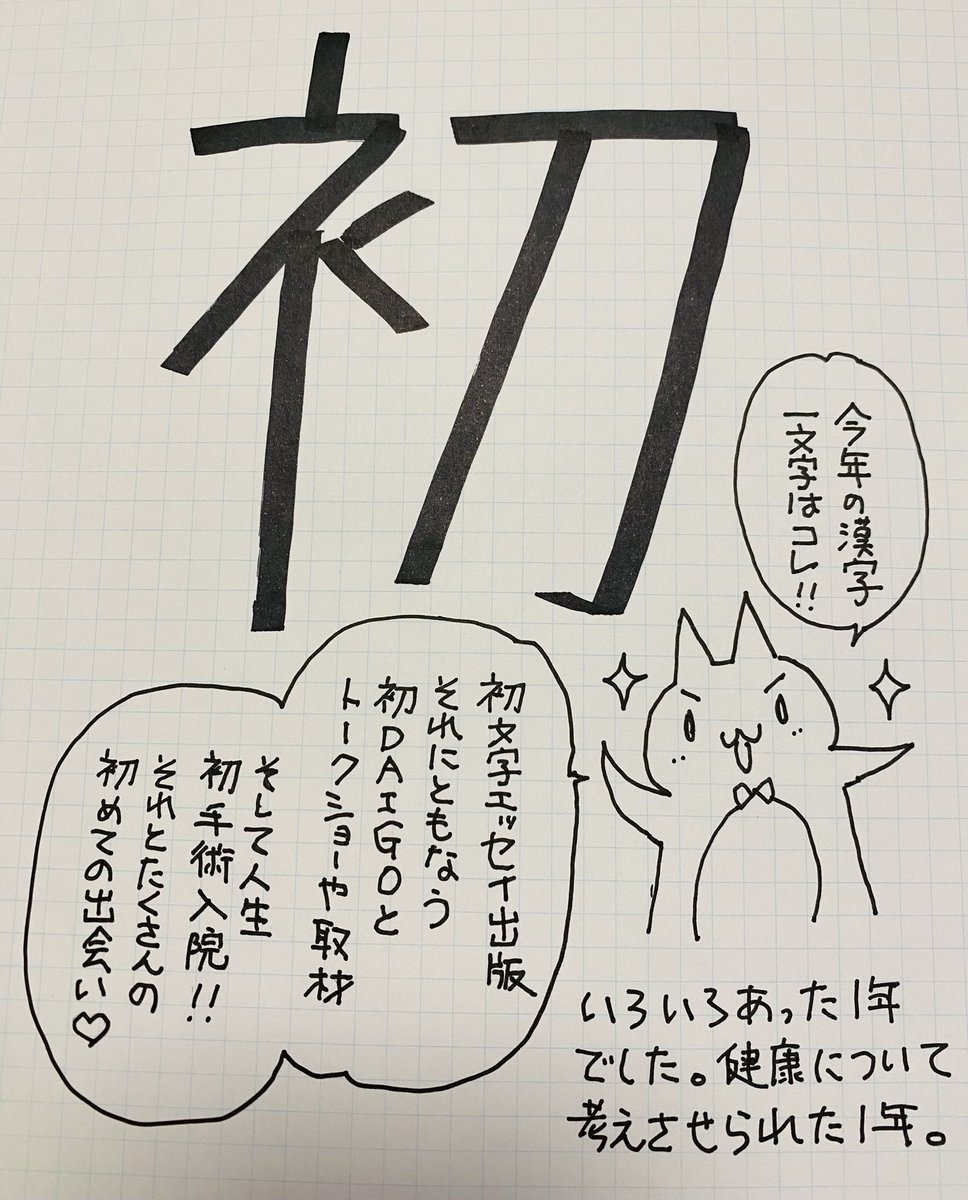 初
今年の漢字
一文字はコレ!!
初文字エッセイ出版
それにともなう
初DAIGOと
トークショーや取材
そして人生
初手術入院!!
それとたくさんの
初めての出会い♡
いろいろあった1年
でした。健康について
考えさせられた1年。